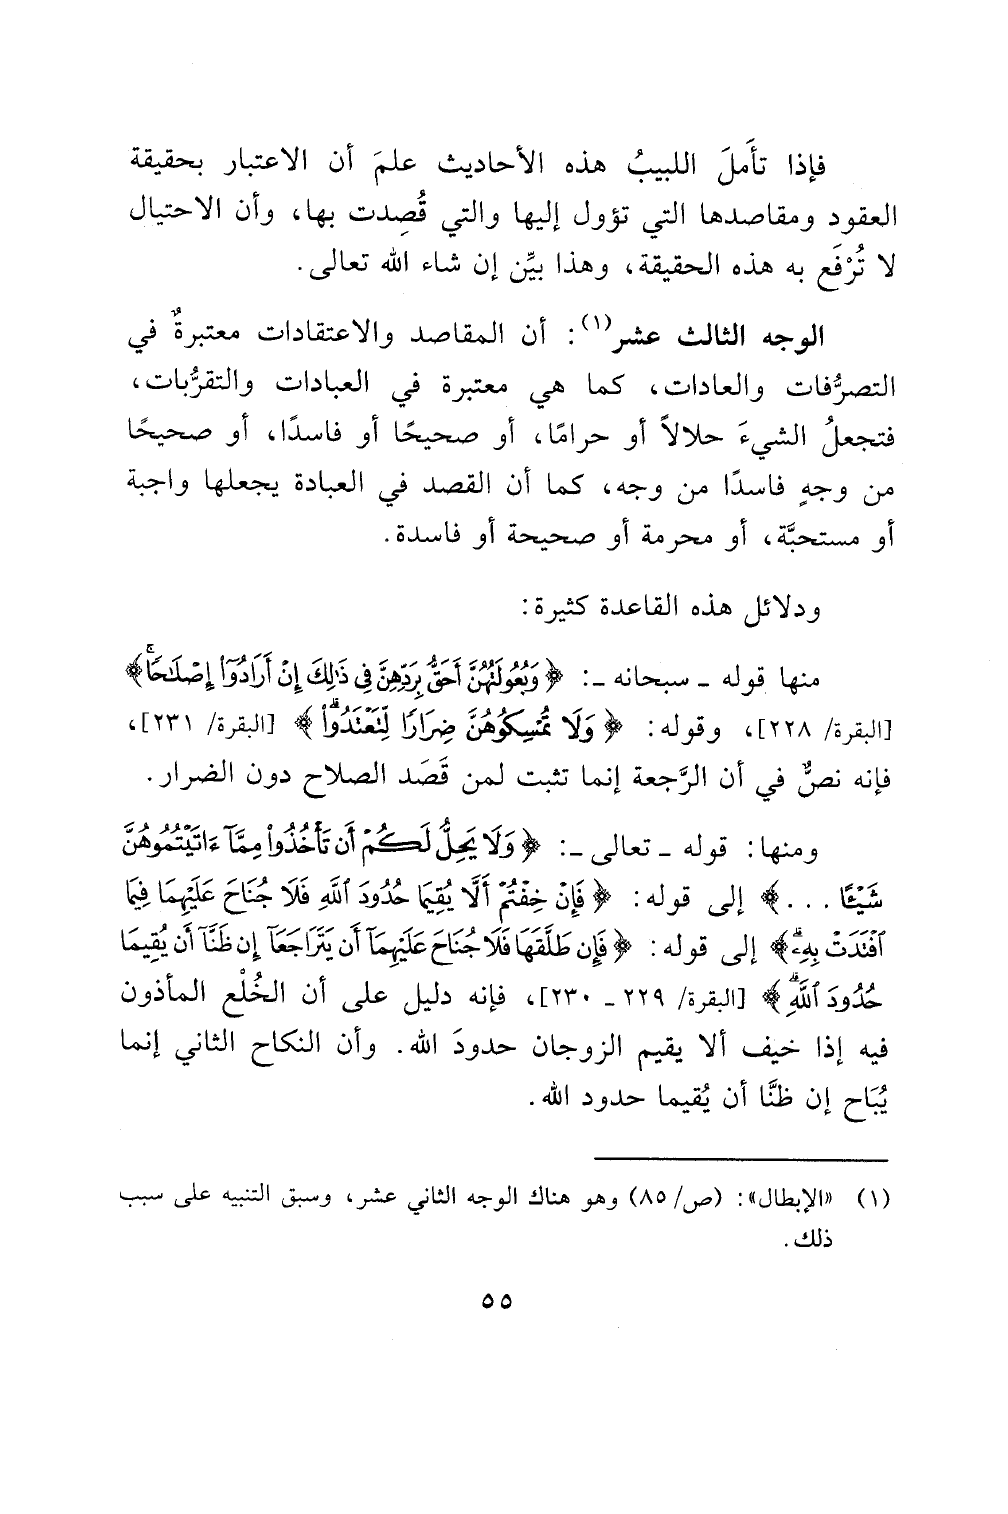 فإذا تأَملَ اللبيبُ هذه الأحاديث علمَ أن الاعتبار بحقيقة
العقود ومقاصدها التي تؤول إليها والتي قُصِدت بها، وأن الاحتيال
لا تُرْفَع به هذه الحقيقة، وهذا بيِّن إن شاء الله تعالى.
الوجه الثالث عشر(١): أن المقاصد والاعتقادات معتبرةٌ في
التصرُّفات والعادات، كما هي معتبرة في العبادات والتقرُّبات،
فتجعلُ الشيءَ حلالاً أو حرامًا، أو صحيحًا أو فاسدًا، أو صحيحًا
من وجهٍ فاسدًا من وجه، كما أن القصد في العبادة يجعلها واجبة
أو مستحبَّة، أو محرمة أو صحيحة أو فاسدة.
ودلائل هذه القاعدة كثيرة:
منها قوله ـ سبحانه ـ: ﴿وَبُعُولَتُهُنَّ أَحَقُّ بِرَدِّهِنَّ فِي ذَٰلِكَ إِنْ أَرَادُوٓاْ إِصْلَٰحًاۚ﴾
[البقرة/ ٢٢٨]، وقوله: ﴿وَلَا تُمْسِكُوهُنَّ ضِرَارًا لِّتَعْتَدُواْۚ﴾ [البقرة/ ٢٣١]،
فإنه نصٌّ في أن الرَّجعة إنما تثبت لمن قَصَد الصلاح دون الضرار.
ومنها: قوله ـ تعالى ـ: ﴿وَلَا يَحِلُّ لَكُمْ أَن تَأْخُذُواْ مِمَّآ ءَاتَيْتُمُوهُنَّ
شَيْـًٔا ...﴾ إلى قوله: ﴿فَإِنْ خِفْتُمْ أَلَّا يُقِيمَا حُدُودَ ٱللَّهِ فَلَا جُنَاحَ عَلَيْهِمَا فِيمَا
ٱفْتَدَتْ بِهِۦۗ﴾ إلى قوله: ﴿فَإِن طَلَّقَهَا فَلَا جُنَاحَ عَلَيْهِمَآ أَن يَتَرَاجَعَآ إِن ظَنَّآ أَن يُقِيمَا
حُدُودَ ٱللَّهِۗ﴾ [البقرة/ ٢٢٩ ـ ٢٣٠]، فإنه دليل على أن الخُلْع المأذون
فيه إذا خيف ألا يقيم الزوجان حدودَ الله. وأن النكاح الثاني إنما
يُبَاح إن ظنَّا أن يُقيما حدود الله.
(١) «الإبطال»: (ص/ ٨٥) وهو هناك الوجه الثاني عشر، وسبق التنبيه على سبب
ذلك.
٥٥